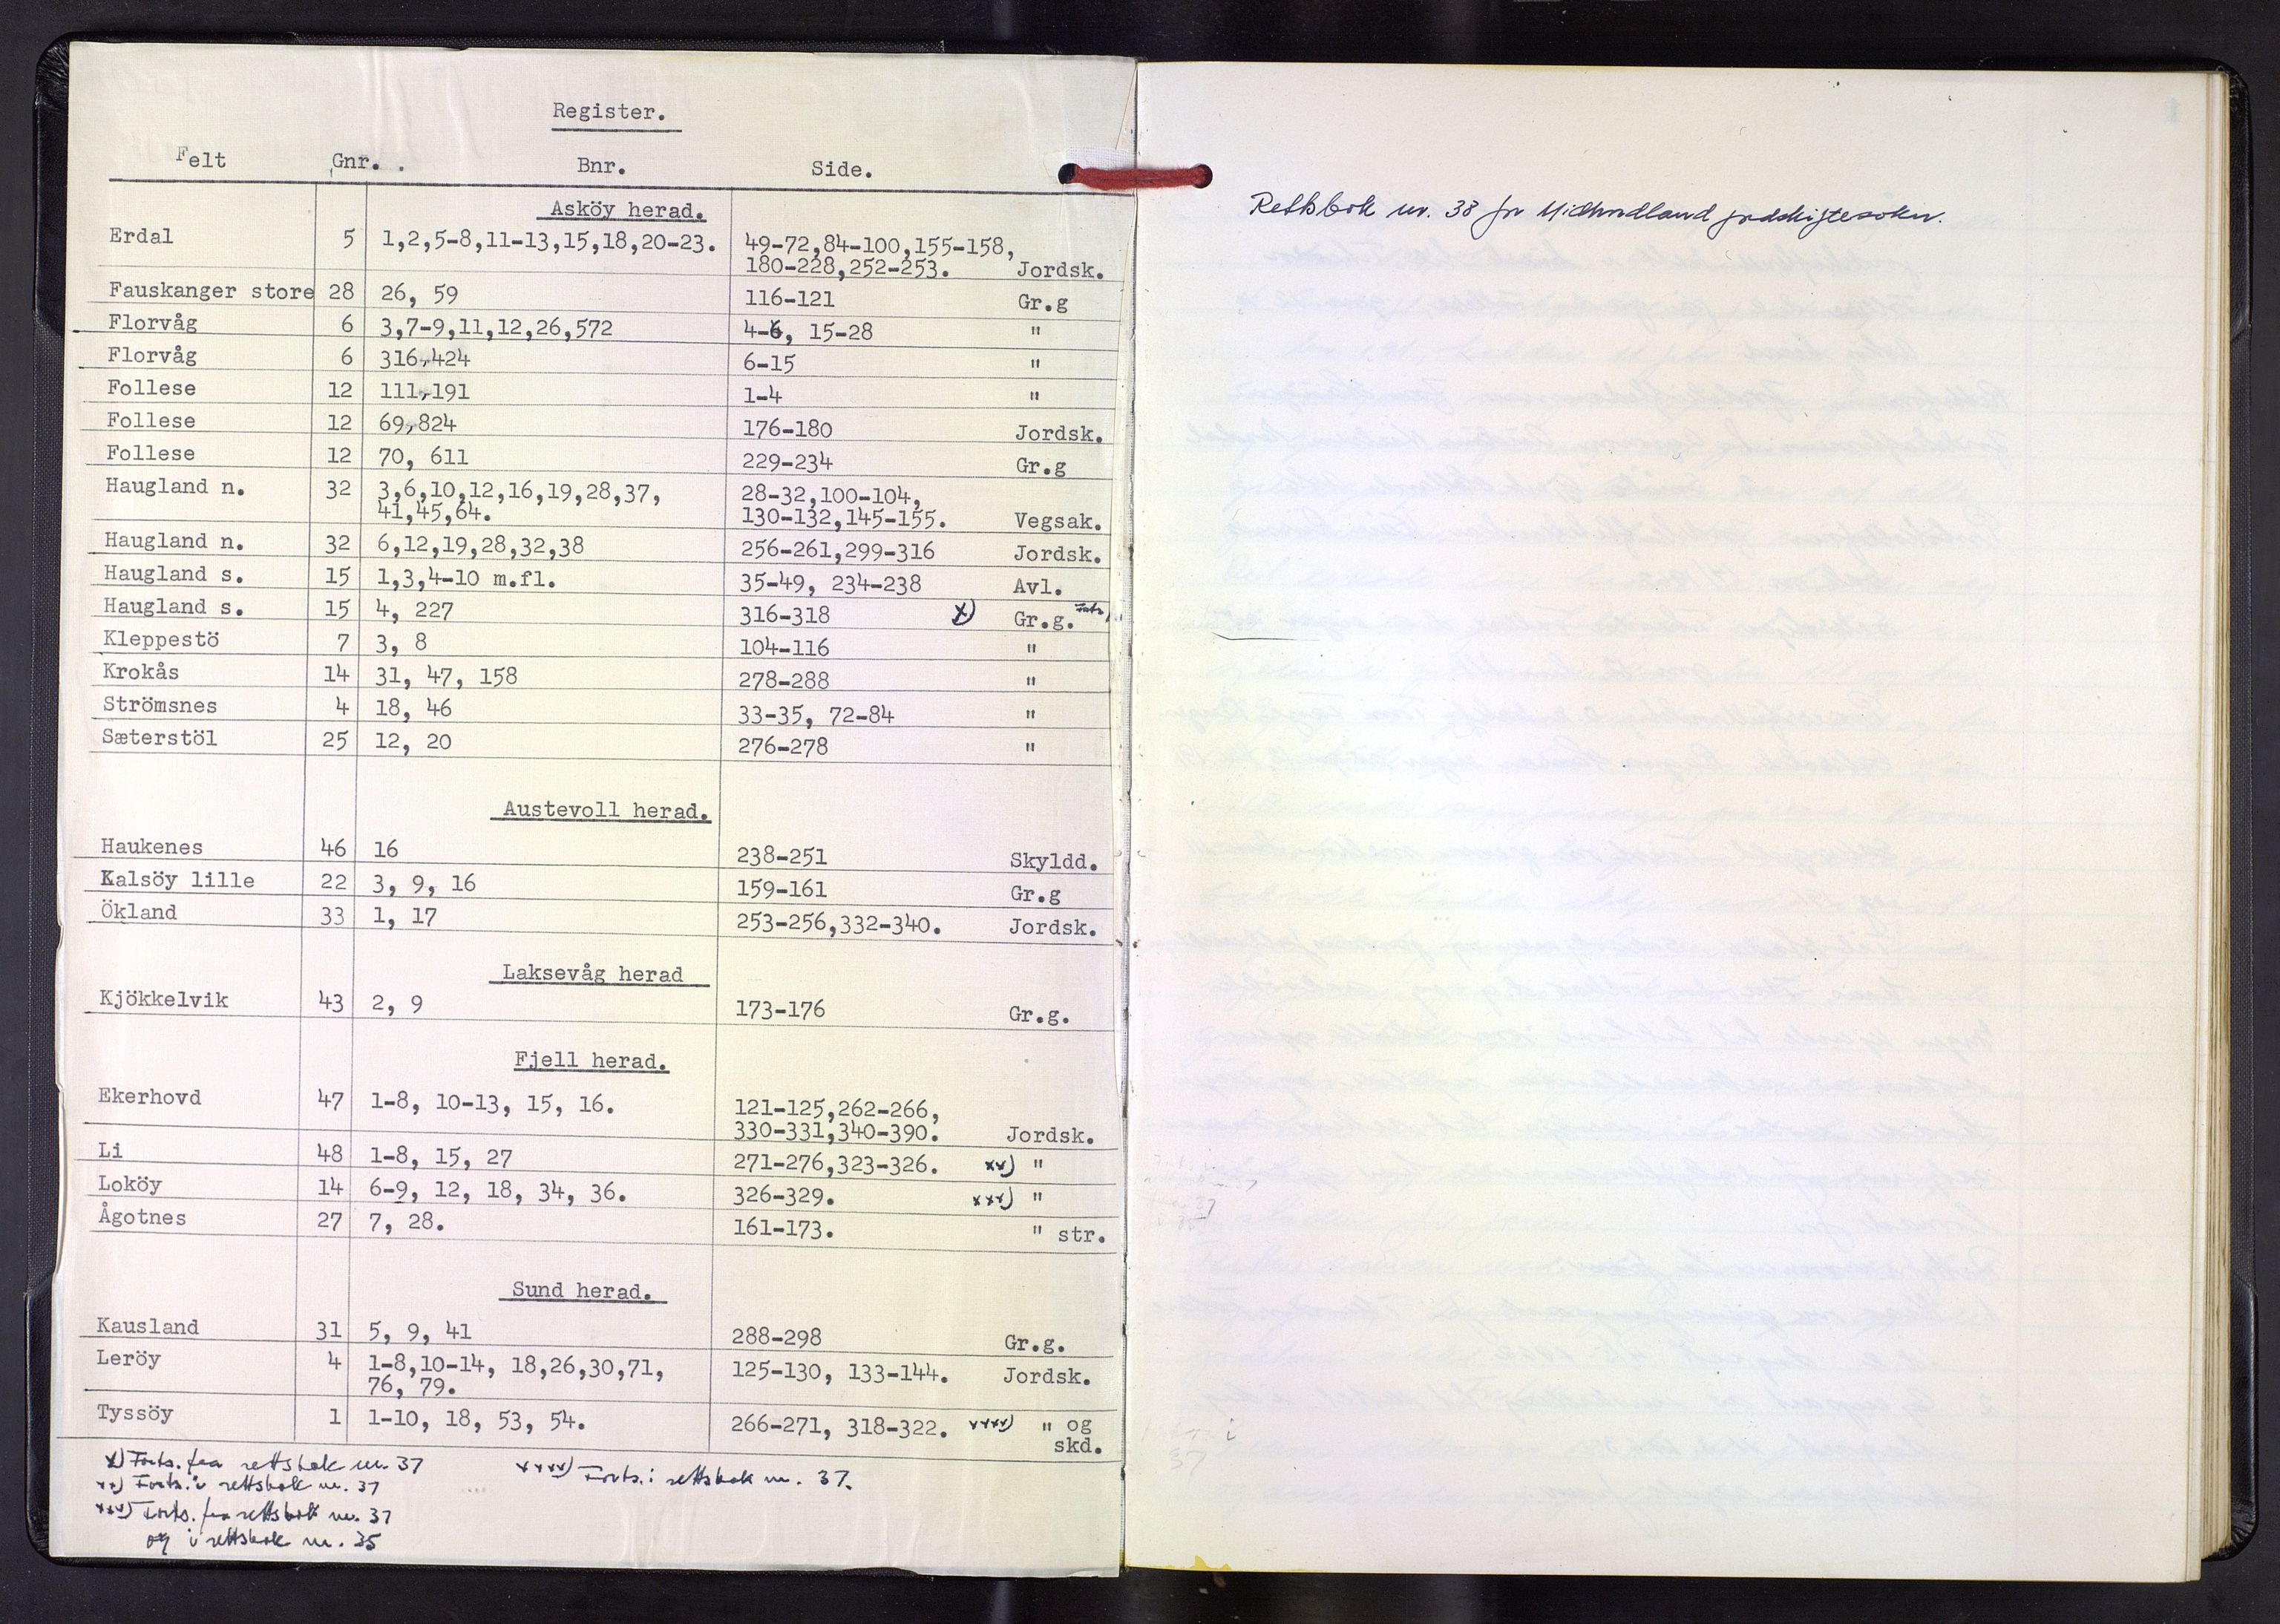 Register.
Felt Gnr. Bnr. Side.
Asköy herad.
Erdal 5 1,2,5-8,11-13,15,18,20-23. 49-72,84-100,155-158,
180-228,252-253. Jordsk.
Fauskanger store 28 26, 59 116-121 Gr.g
Florvåg 6 3,7-9,11,12,26,572 4-6, 15-28 "
Florvåg 6 316,424 6-15 "
Follese 12 111,191 1-4 "
Follese 12 69,824 176-180 Jordsk.
Follese 12 70, 611 229-234 Gr.g
Haugland n. 32 3,6,10,12,16,19,28,37, 28-32,100-104,
41,45,64. 130-132,145-155. Vegsak.
Haugland n. 32 6,12,19,28,32,38 256-261,299-316 Jordsk.
Haugland s. 15 1,3,4-10 m.fl. 35-49, 234-238 Avl.
Haugland s. 15 4, 227 316-318 x) Gr.g.
Kleppestö 7 3, 8 104-116 "
Krokås 14 31, 47, 158 278-288 "
Strömsnes 4 18, 46 33-35, 72-84 "
Sæterstöl 25 12, 20 276-278 "
Austevoll herad.
Haukenes 46 16 238-251 Skyldd.
Kalsöy lille 22 3, 9, 16 159-161 Gr.g
Ökland 33 1, 17 253-256,332-340. Jordsk.
Laksevåg herad
Kjökkelvik 43 2, 9 173-176 Gr.g.
Fjell herad.
Ekerhovd 47 1-8, 10-13, 15, 16. 121-125,262-266,
330-331,340-390. Jordsk.
Li 48 1-8, 15, 27 271-276,323-326. xx) "
Loköy 14 6-9, 12, 18, 34, 36. 326-329. xxx) "
Ågotnes 27 7, 28. 161-173. " str.
Sund herad.
Kausland 31 5, 9, 41 288-298 Gr.g.
Leröy 4 1-8,10-14, 18,26,30,71, 125-130, 133-144. Jordsk.
76, 79.
Tyssöy 1 1-10, 18, 53, 54. 266-271, 318-322. xxxx) " og
skd.
x) Forts. fra rettsbok nr. 37
xx) Forts. i rettsbok nr. 37
xxx) Forts. fra rettsbok nr. 37
og i rettsbok nr. 35
xxxx) Forts. i rettsbok nr. 37.
Rettsbok nr. 38 for Midhordland jordskiftesokn.